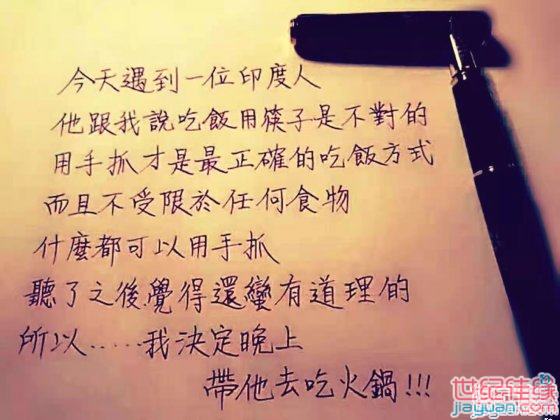 今天遇到一位印度人
他跟我說吃飯用筷子是不對的
用手抓才是最正確的吃飯方式
而且不受限於任何食物
什麼都可以用手抓
聽了之後覺得還蠻有道理的
所以.....我決定晚上
帶他去吃火鍋!!!
世纪佳缘
jiayuan.com